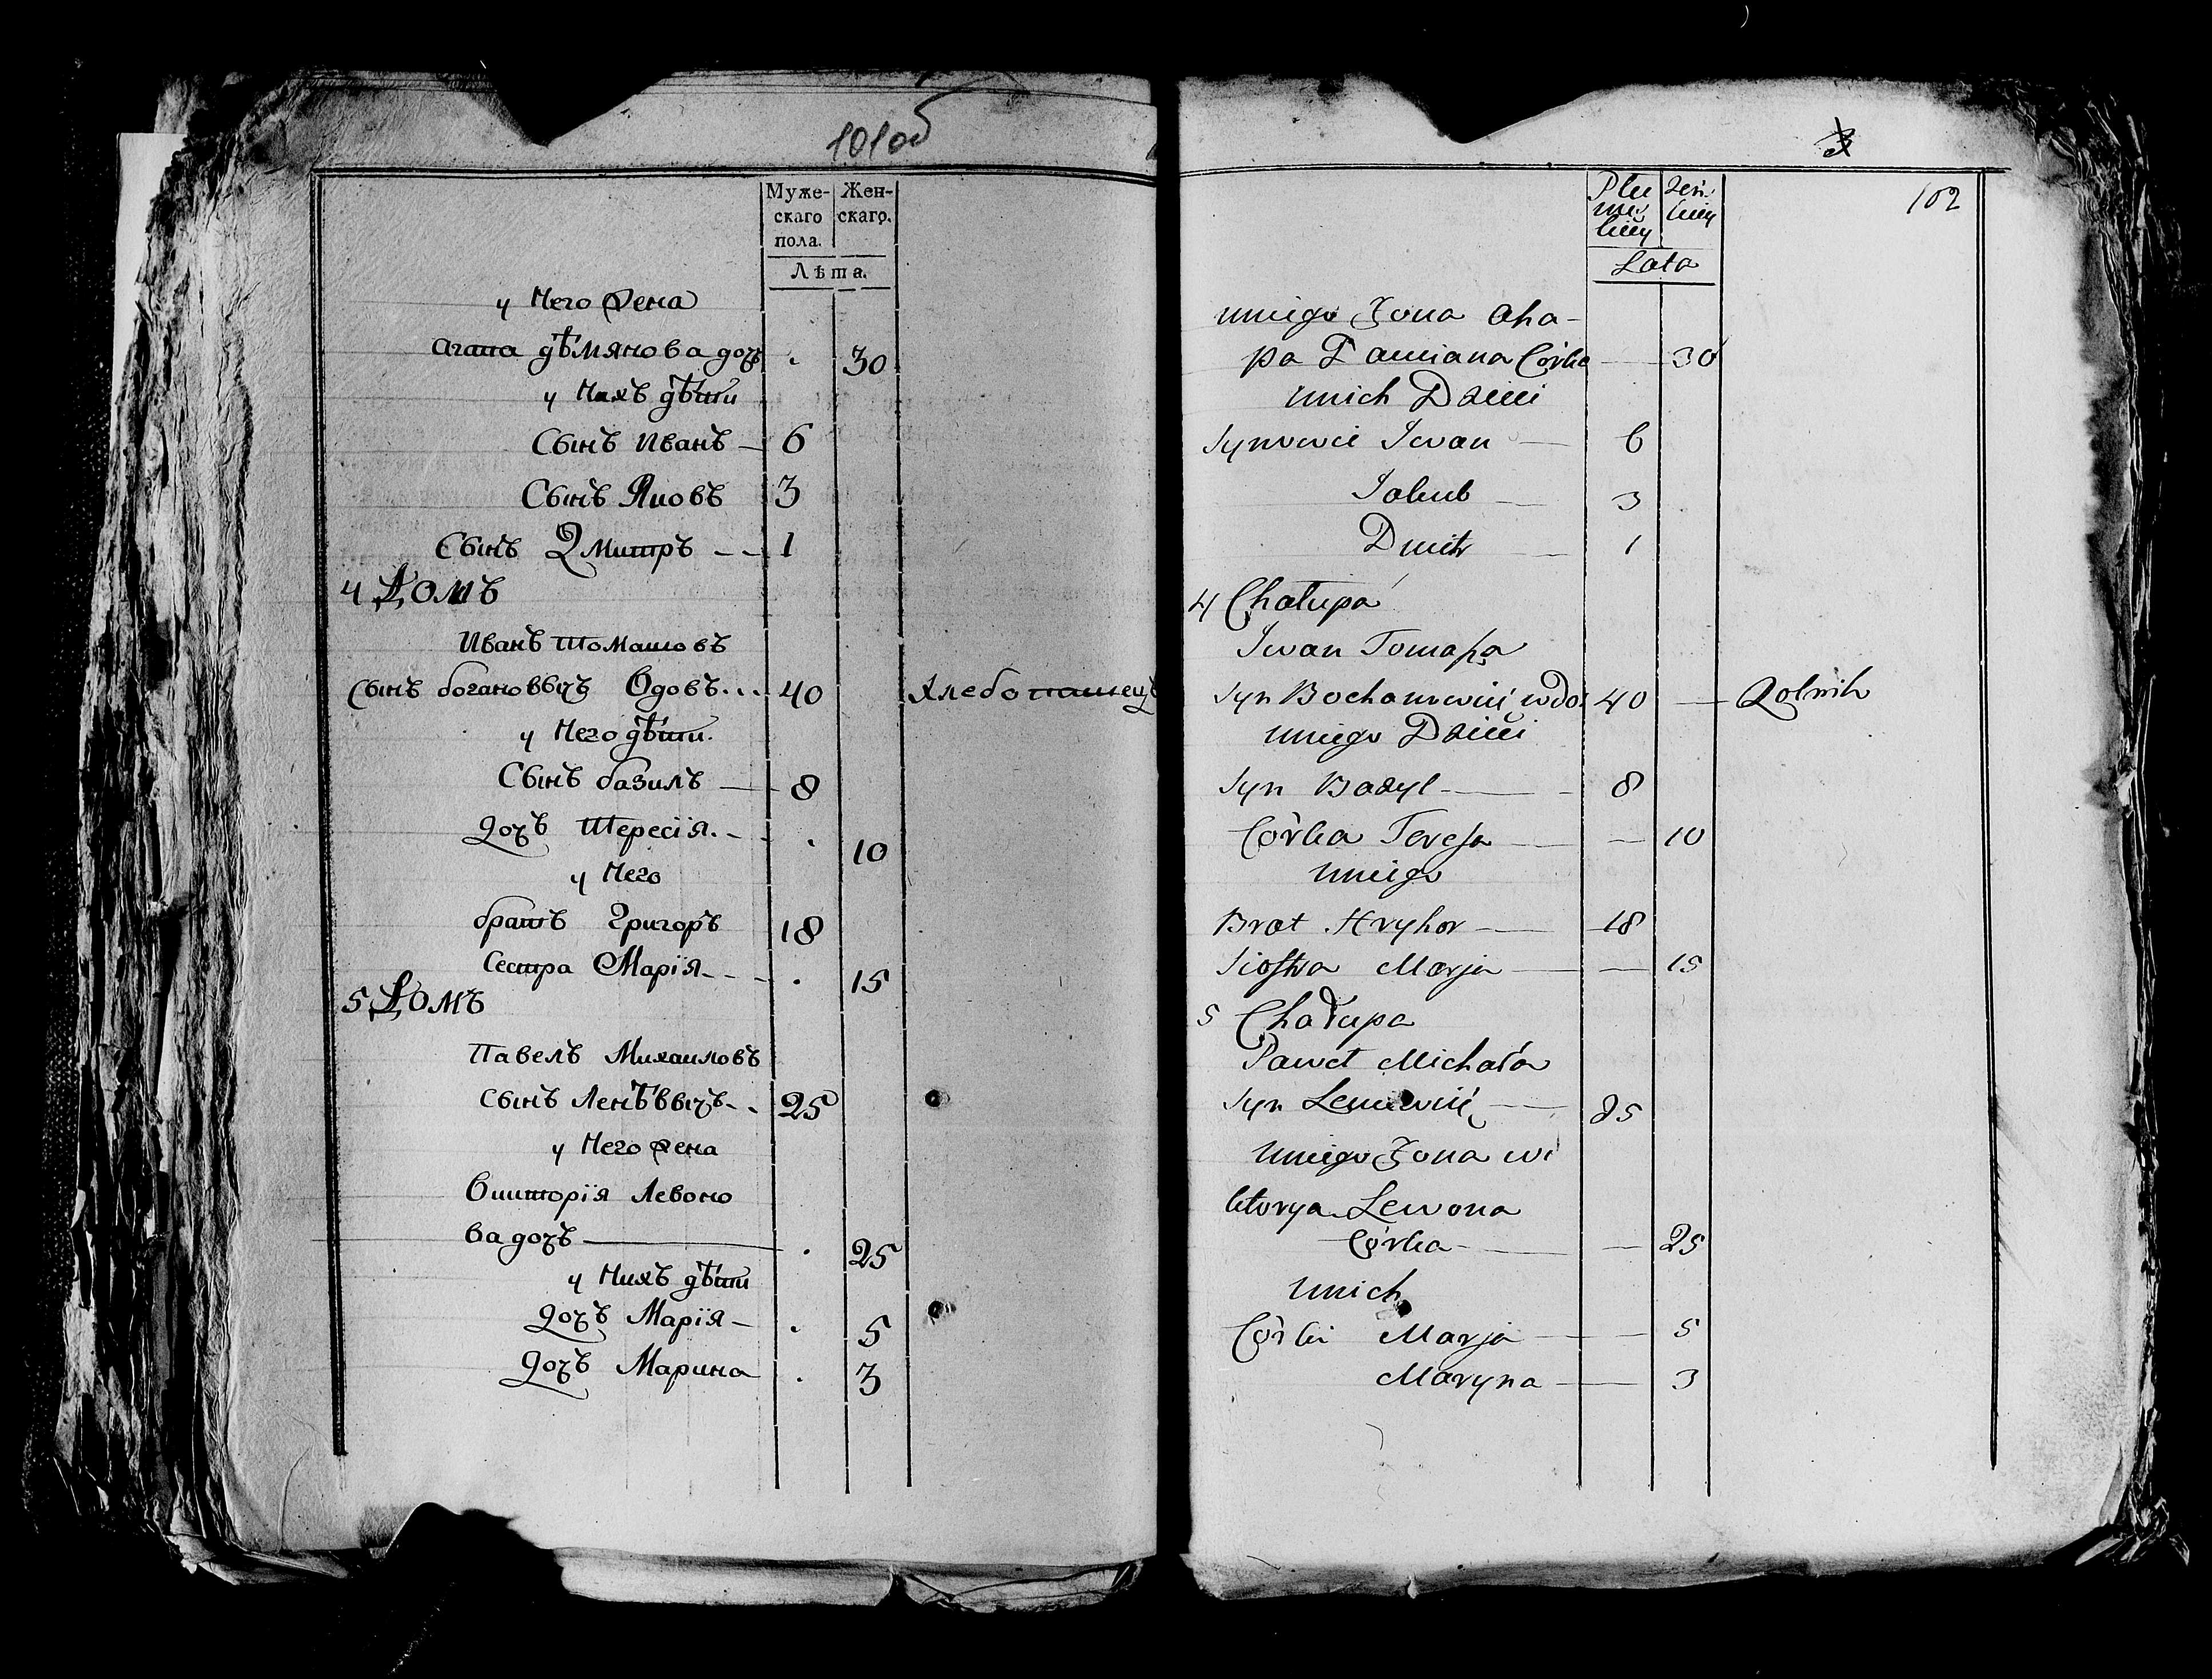 101об
Муже- Жен-
скаго скаго.
пола.
Лѣта.
у Него Жена
Агапа дѣмянова дочь . 30
у Нихъ дѣти
Сынъ Иванъ — 6
Сынъ Яковъ 3
Сынъ Дмитръ - - 1
4 Домъ
Иванъ Томашовъ
Сынъ богановвычъ Вдовъ... 40 Хлебопашецъ
у Него дѣти.
Сынъ базилъ — 8
Дочъ Тересія. - . 10
у Него
братъ Григоръ 18
Сестра Марія - - . 15
5 Домъ
Павелъ Михаиловъ
сынъ Ленѣввычъ - . 25
у Него Жена
Викторія Левоно
ва дочъ — . 25
у Нихъ дѣти
Дочъ Марія — . 5
Дочъ Марина . 3
3
102
Lata
uniego Żona Aha-
pa Damiana Córka — 30
unich Dzieci
Synowie Iwan — 6
Jakub — 3
Dmitr — 1
4 Chałupa
Iwan Tomaſza
Syn Bochanowicz wdo: 40 — Rolnik
uniego Dzieci
Syn Bazyl — 8
Córka Tereſa — — 10
uniego
Brat Hryhor — 18
Sioſtra Marja — — 15
5 Chałupa
Paweł Michała
Syn Leniewicz — 25
uniego Żona Wi
ktorya Lewona
Córka — — 25
unich
Córki Marja — — 5
Maryna — 3